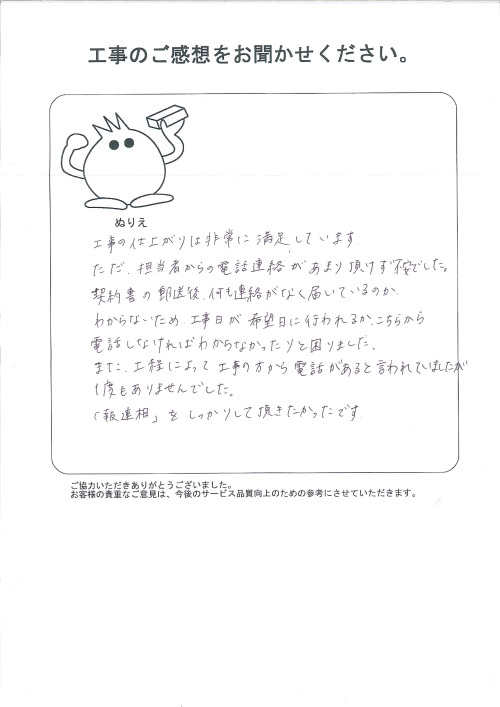 工事のご感想をお聞かせください。
ぬりえ
工事の仕上がりは非常に満足しています
ただ、担当者からの電話連絡があまり頂けず不安でした。
契約書の郵送後、何も連絡がなく届いているのか
わからないため、工事日が希望日に行われるか、こちらから
電話しなければわからなかったりと困りました、
また、工程によって工事の方から電話があると言われていましたが
1度もありませんでした。
「報連相」をしっかりして頂きたかったです
ご協力いただきありがとうございました。
お客様の貴重なご意見は、今後のサービス品質向上のための参考にさせていただきます。